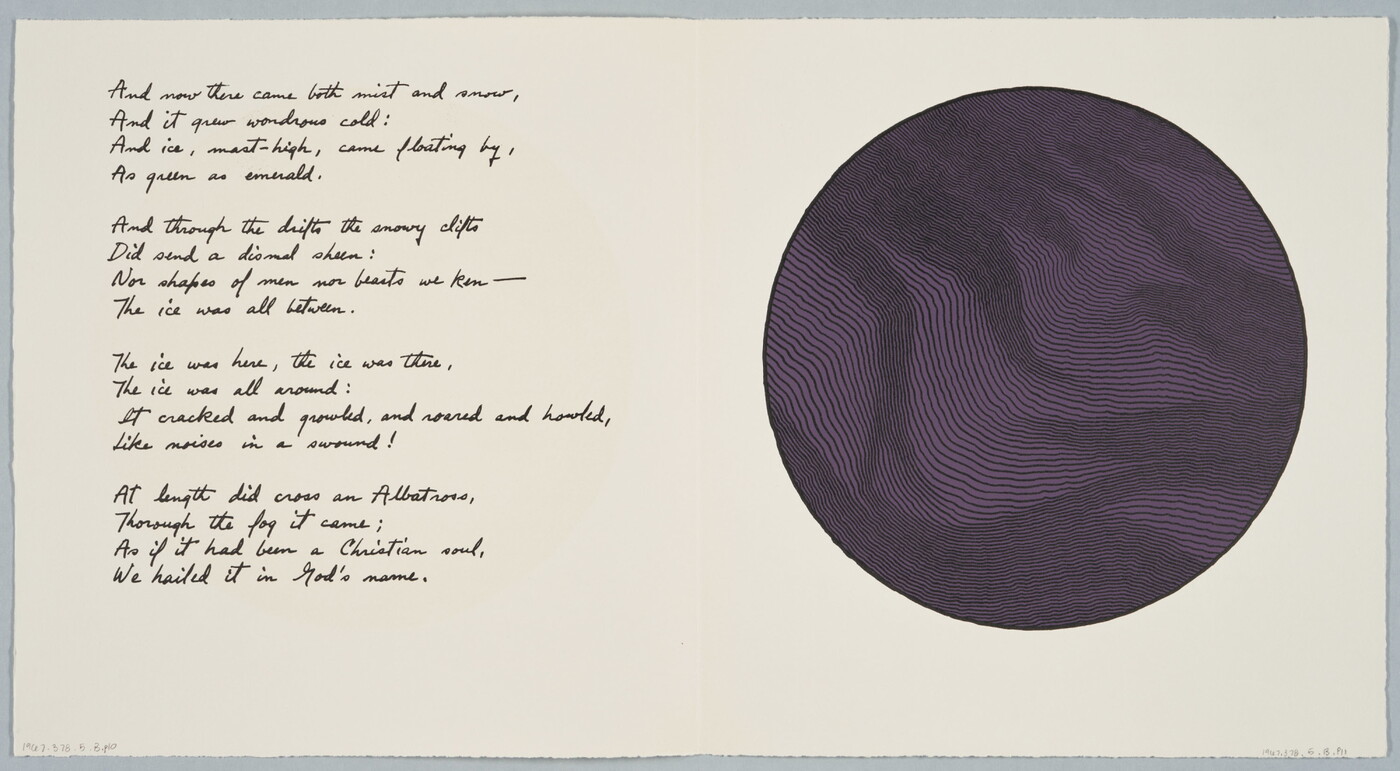 And now there came both mist and snow,
And it grew wondrous cold:
And ice, mast-high, came floating by,
As green as emerald.
And through the drifts the snowy clifts
Did send a dismal sheen:
Nor shapes of men nor beasts we ken—
The ice was all between.
The ice was here, the ice was there,
The ice was all around:
It cracked and growled, and roared and howled,
Like noises in a swound!
At length did cross an Albatross,
Thorough the fog it came;
As if it had been a Christian soul,
We hailed it in God's name.
1967.378.5.8.p10
1967.378.5.8.p11